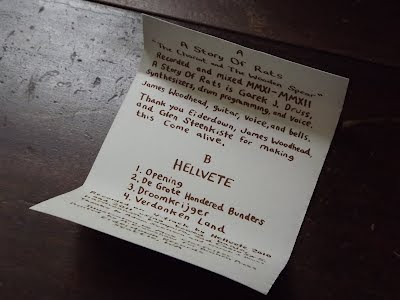 A
A Story Of Rats
"The Chariot and The Wooden Spear"
Recorded and mixed MMXI-MMXII
A Story Of Rats is Garek J. Druss,
Synthesizers, drum programming, and voice.
James Woodhead, guitar, voice, and bells.
Thank you Eiderdown, James Woodhead,
and Glen Steenkiste for making
this Come alive.
B
HELLVETE
1. Opening
2. De Grote Hondered Bunders
3. Droomkrijger
4. Verdonken Land
by Hellvete 2010